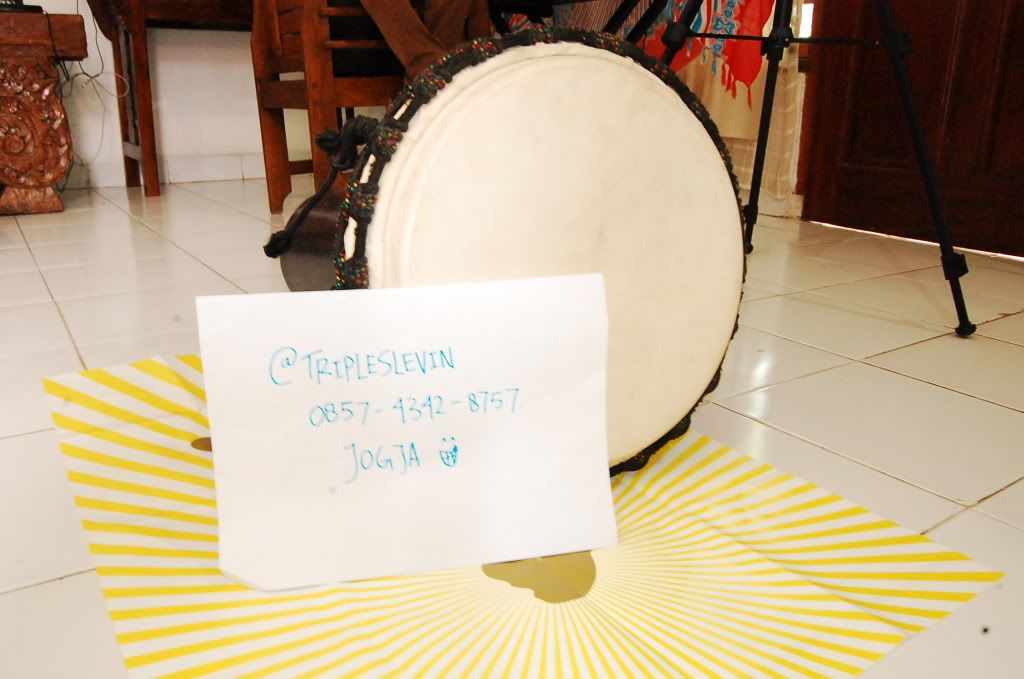 @TRIPLESLEVIN
0857-4342-8757
JOGJA